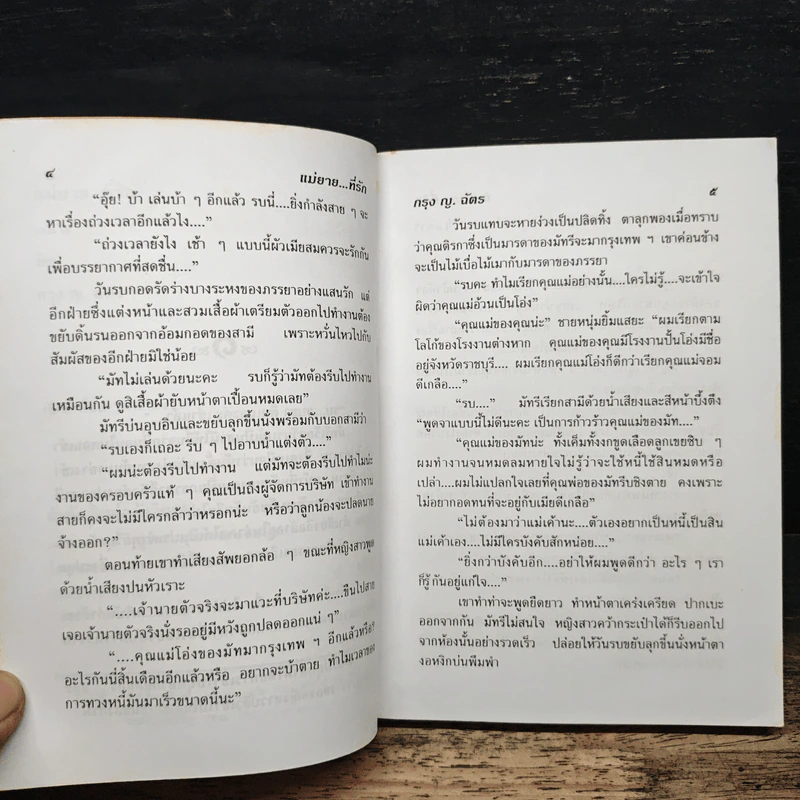 ๔
แม่ยาย...ที่รัก
“อุ๊ย! บ้า เล่นบ้า ๆ อีกแล้ว รบนี่....ยิ่งกำลังสาย ๆ จะ
หาเรื่องถ่วงเวลาอีกแล้วไง....”
“ถ่วงเวลายังไง เช้า ๆ แบบนี้ผัวเมียสมควรจะรักกัน
เพื่อบรรยากาศที่สดชื่น....”
วันรบกอดรัดร่างบางระหงของภรรยาอย่างแสนรัก แต่
อีกฝ่ายซึ่งแต่งหน้าและสวมเสื้อผ้าเตรียมตัวออกไปทำงานต้อง
ขยับดิ้นรนออกจากอ้อมกอดของสามี เพราะหวั่นไหวไปกับ
สัมผัสของอีกฝ่ายมิใช่น้อย
“มัทไม่เล่นด้วยนะคะ รบก็รู้ว่ามัทต้องรีบไปทำงาน
เหมือนกัน ดูสิเสื้อผ้ายับหน้าตาเปื้อนหมดเลย”
มัทรีบ่นอุบอิบและขยับลุกขึ้นนั่งพร้อมกับบอกสามีว่า
“รบเองก็เถอะ รีบ ๆ ไปอาบน้ำแต่งตัว....”
“ผมน่ะต้องรีบไปทำงาน แต่มัทจะต้องรีบไปทำไมน่ะ
งานของครอบครัวแท้ ๆ คุณเป็นถึงผู้จัดการบริษัท เข้าทำงาน
สายก็คงจะไม่มีใครกล้าว่าหรอกน่ะ หรือว่าลูกน้องจะปลดนาย
จ้างออก?”
ตอนท้ายเขาทำเสียงสัพยอกล้อ ๆ ขณะที่หญิงสาวพูด
ด้วยน้ำเสียงปนหัวเราะ
“....เจ้านายตัวจริงจะมาแวะที่บริษัทค่ะ....ขืนไปสาย
เจอเจ้านายตัวจริงนั่งรออยู่มีหวังถูกปลดออกแน่ ๆ”
“....คุณแม่โอ่งของมัทมากรุงเทพ ฯ อีกแล้วหรือ?
อะไรกันนี่สิ้นเดือนอีกแล้วหรือ อยากจะบ้าตาย ทำไมเวลาของ
การทวงหนี้มันมาเร็วขนาดนี้นะ”
กรุง ญ. ฉัตร
๕
วันรบแทบจะหายง่วงเป็นปลิดทิ้ง ตาลุกพองเมื่อทราบ
ว่าคุณติรกาซึ่งเป็นมารดาของมัทรีจะมากรุงเทพ ฯ เขาค่อนข้าง
จะเป็นไม้เบื่อไม้เมากับมารดาของภรรยา
“รบคะ ทำไมเรียกคุณแม่อย่างนั้น....ใครไม่รู้....จะเข้าใจ
ผิดว่าคุณแม่อ้วนเป็นโอ่ง”
“คุณแม่ของคุณน่ะ” ชายหนุ่มยิ้มแสยะ “ผมเรียกตาม
โลโก้ของโรงงานต่างหาก คุณแม่ของคุณมีโรงงานปั้นโอ่งมีชื่อ
อยู่จังหวัดราชบุรี.... ผมเรียกคุณแม่โอ่งก็ดีกว่าเรียกคุณแม่จอม
ตีเกลือ....”
“รบ....” มัทรีเรียกสามีด้วยน้ำเสียงและสีหน้าบึ้งตึง
“พูดจาแบบนี้ไม่ดีนะคะ เป็นการก้าวร้าวคุณแม่ของมัท....”
“คุณแม่ของมัทน่ะ ทั้งเค็มทั้งงกขูดเลือดลูกเขยซิบ ๆ
ผมทำงานจนหมดลมหายใจไม่รู้ว่าจะใช้หนี้ใช้สินหมดหรือ
เปล่า....ผมไม่แปลกใจเลยที่คุณพ่อของมัทรีบชิงตาย คงเพราะ
ไม่อยากอดทนที่จะอยู่กับเมียตีเกลือ”
“ไม่ต้องมาว่าแม่เค้านะ....ตัวเองอยากเป็นหนี้เป็นสิน
แม่เค้าเอง....ไม่มีใครบังคับสักหน่อย....”
“ยิ่งกว่าบังคับอีก....อย่าให้ผมพูดดีกว่า อะไร ๆ เรา
ก็รู้กันอยู่แก่ใจ....”
เขาทำท่าจะพูดยืดยาว ทำหน้าตาเคร่งเครียด ปากเบะ
ออกจากกัน มัทรีไม่สนใจ หญิงสาวคว้ากระเป๋าได้ก็รีบออกไป
จากห้องนั้นอย่างรวดเร็ว ปล่อยให้วันรบขยับลุกขึ้นนั่งหน้าตา
งอหงิกบ่นพึมพำ